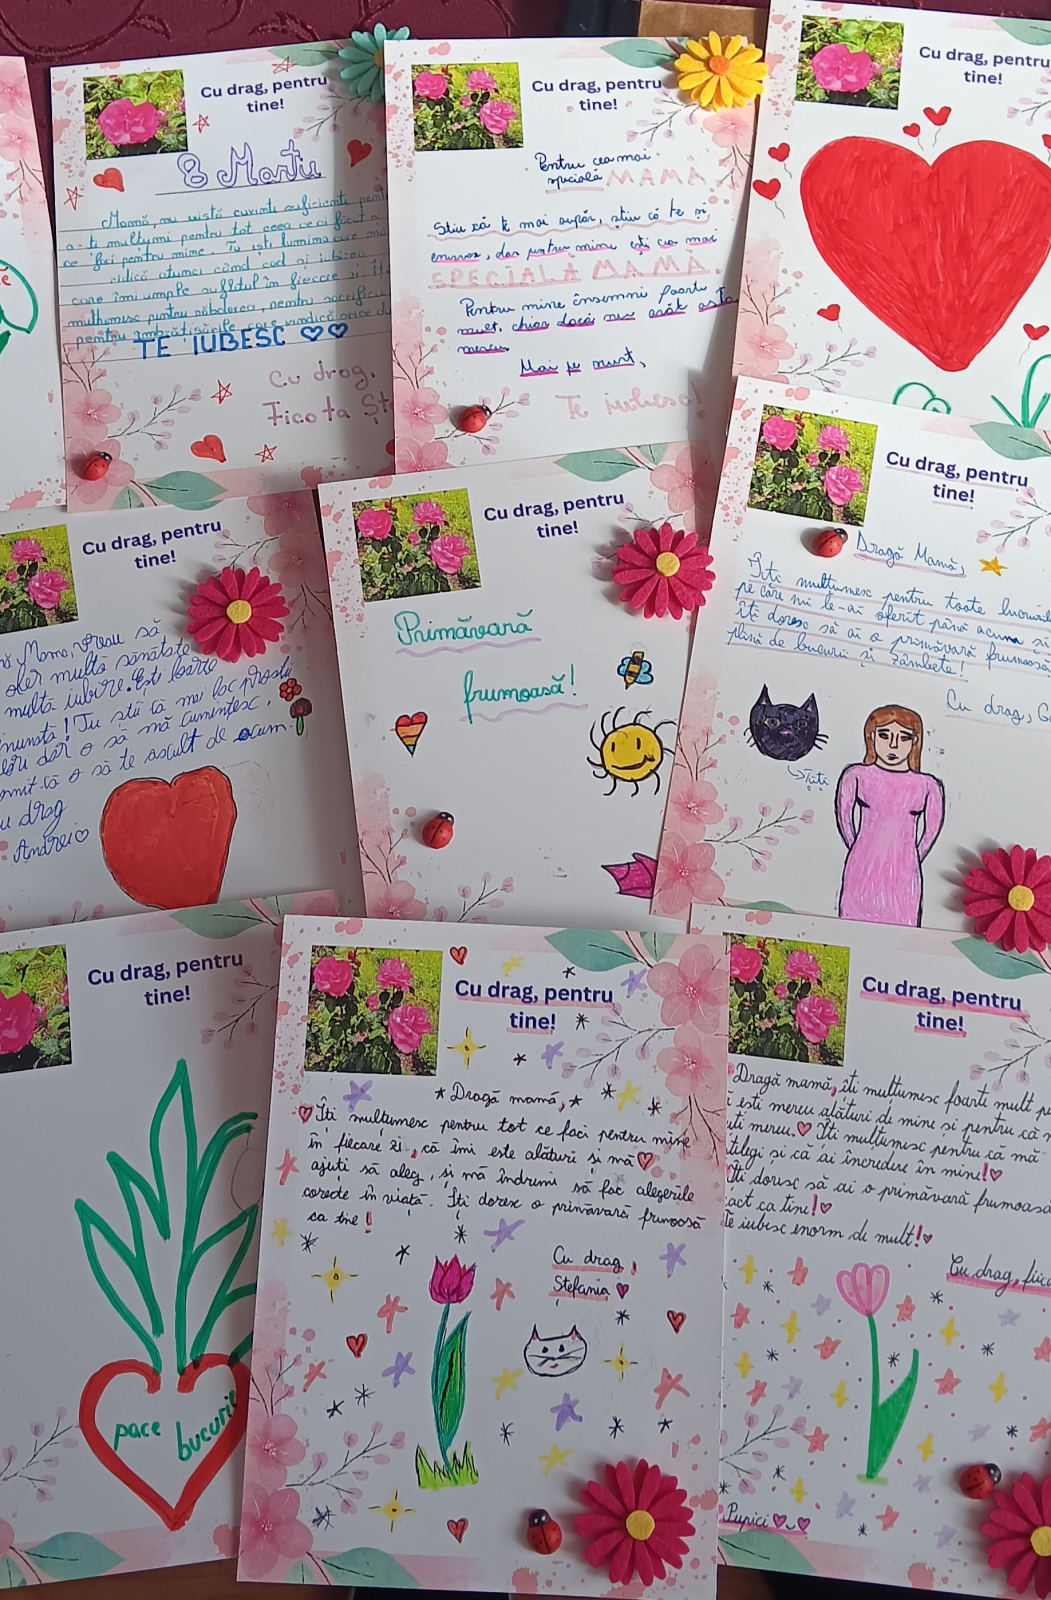 Cu drag, pentru
tine!
8 Martie
Mamă, nu există cuvinte suficiente
a-ți mulțumi pentru tot ceea ce ai făcut și
ce faci pentru mine. Tu ești lumina care mă
ridică atunci când cad și iubirea
care îmi umple sufletul în fiecare zi. Îți
mulțumesc pentru răbdarea, pentru sacrificii
pentru îmbrățișările care vindică orice
TE IUBESC
Cu drag,
Fiica ta
Cu drag, pentru
tine!
Pentru cea mai
specială MAMĂ
Știu că te mai supăr, știu că te și
enervez, dar pentru mine ești cea mai
SPECIALĂ MAMĂ.
Pentru mine însemni foarte
mult, chiar dacă nu arăt asta
mereu
Mai pe scurt,
Te iubesc!
Cu drag, pentru
tine!
Cu drag, pentru
tine!
Mama vreau să
ofer multă sănătate
multă iubire. Ești foarte
Tu știi că mai fac prostii
dar o să mă cumințesc.
o să te ascult de acum.
drag
Andrei
Cu drag, pentru
tine!
Primăvară
frumoasă!
Cu drag, pentru
tine!
Dragă Mamă,
Îți mulțumesc pentru toate lucrurile
pe care mi le-ai oferit până acuma și
îți doresc să ai o primăvară frumoasă
plină de bucurii și zâmbete!
Cu drag,
Cu drag, pentru
tine!
pace
bucurie
Cu drag, pentru
tine!
Dragă mamă,
Îți mulțumesc pentru tot ce faci pentru mine
în fiecare zi, că îmi este alături și mă
ajuți să aleg, și mă îndrumi să fac alegerile
corecte în viață. Îți doresc o primăvară frumoasă
ca tine!
Cu drag,
Ștefania
Cu drag, pentru
tine!
Dragă mamă, îți mulțumesc foarte mult
ești mereu alături de mine și pentru că
mereu. Îți mulțumesc pentru că mă
și că ai încredere în mine!
Îți doresc să ai o primăvară frumoasă
ca tine!
Te iubesc enorm de mult!
Cu drag,
Pupici